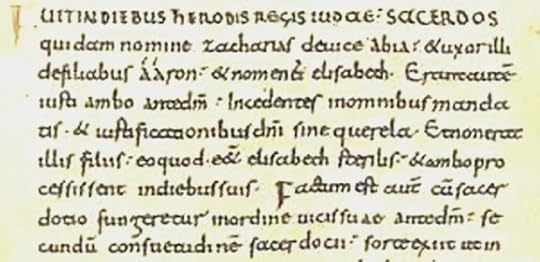 FUIT IN DIEBUS HERODIS REGIS IUDAE: SACERDOS
quidam nomine zacharias de uice abia: & uxor illi
de filiabus ááron: & nomen ei᾽ elisabeth. Erant autē
iusti ambo ante dm̄: Incedentes in omnibus manda
tis. & iustificationibus dm̄ sine querela. Et non erat
illis filius: eo quod e&̄ elisabeth sterilis: & ambo pro
cessissent in diebus suis. Factum est aut̄ cū sacer
dotio fungeretur in ordine uicis suae ante dm̄: se
cundū consuetudinē sacerdotii: sorte exiit ut in